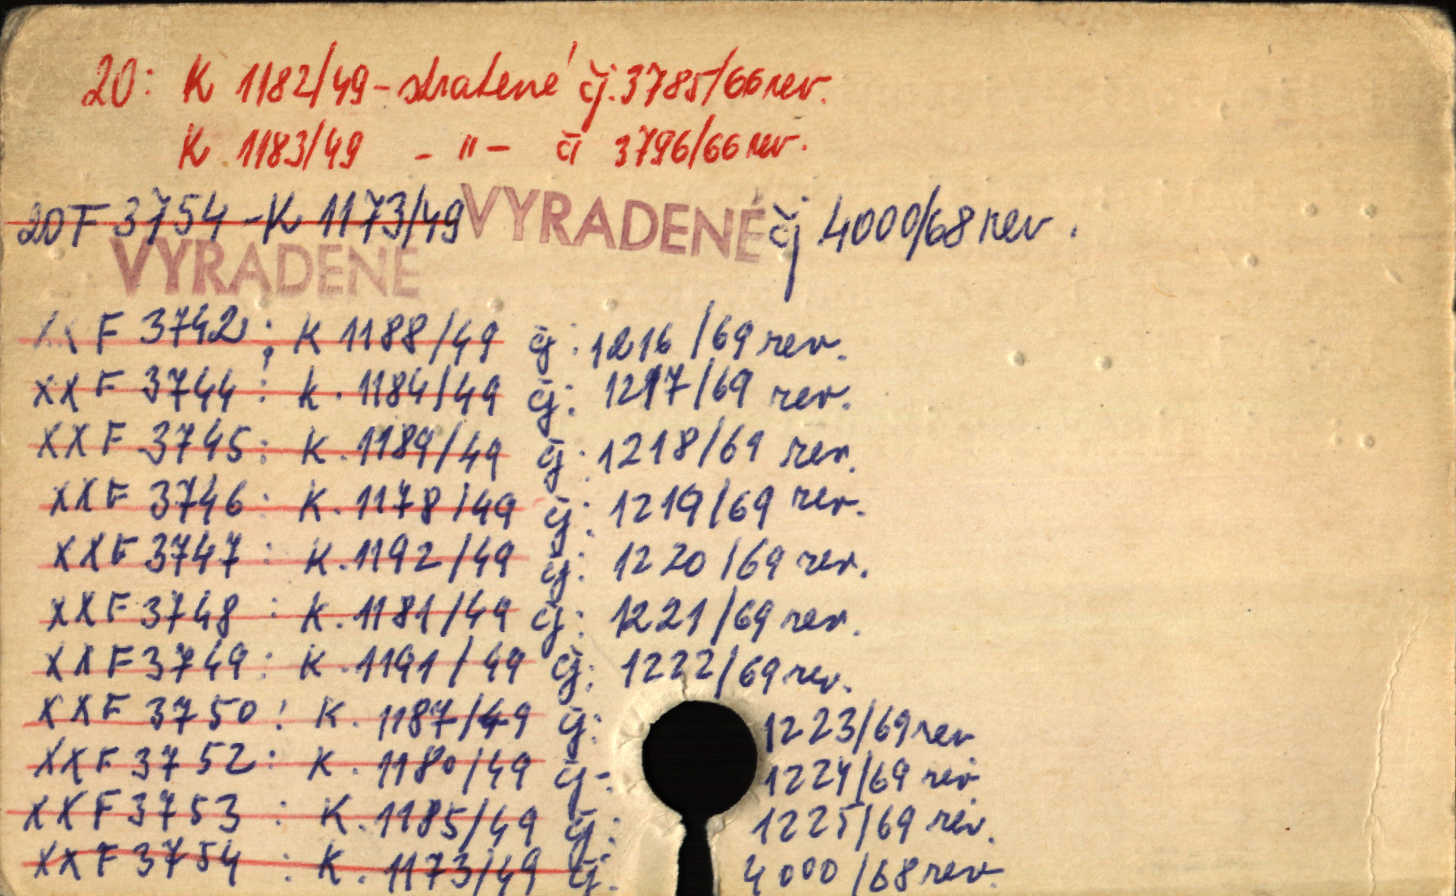 20: K 1182/49 - stratené čj. 3785/66 rev.
K. 1183/49 - " - čj 3796/66 rev.
20F 3754 - K 1173/49 VYRADENÉ čj 4000/68 rev.
VYRADENÉ
XX F 3742: K 1188/49 čj: 1216/69 rev.
XX F 3744: K. 1184/49 čj: 1217/69 rev.
XX F 3745: K. 1189/49 čj: 1218/69 rev.
XX F 3746: K. 1178/49 čj: 1219/69 rev.
XX F 3747: K. 1192/49 čj: 1220/69 rev.
XX F 3748: K. 1181/49 čj: 1221/69 rev.
XX F 3749: K. 1191/49 čj: 1222/69 rev.
XX F 3750: K. 1187/49 čj: 1223/69 rev
XX F 3752: K. 1180/49 čj- 1224/69 rev.
XX F 3753: K. 1185/49 čj: 1225/69 rev.
XX F 3754: K. 1173/49 čj. 4000/68 rev.